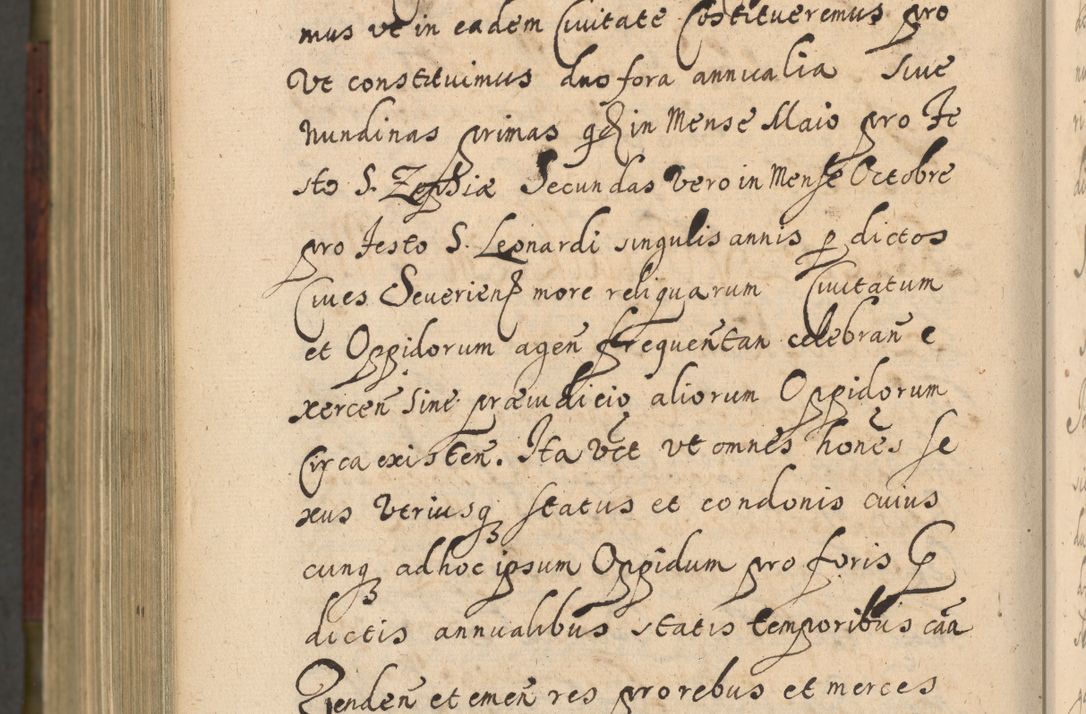 mus ut in eadem Civitate Constitueremus pro
Ut constituimus duo fora annualia sive
Nundinas primas qd in Mense Maio pro Fe
sto S. Zophiæ Secundas Vero in Mense Octobre
pro festo S. Leonardi singulis annis p dictos
Cives Severien more reliquarum Civitatum
et Oppidorum agen frequentan celebran e
xercen Sine præiudicio aliorum Oppidorum
Circa existen. Ita vtt ut omnes hones se
xus utriusq status et condonis cuius
cunq adhoc ipsum Oppidum pro foris p
dictis annualibus statis temporibus caa
Venden et emen res pro rebus et merces